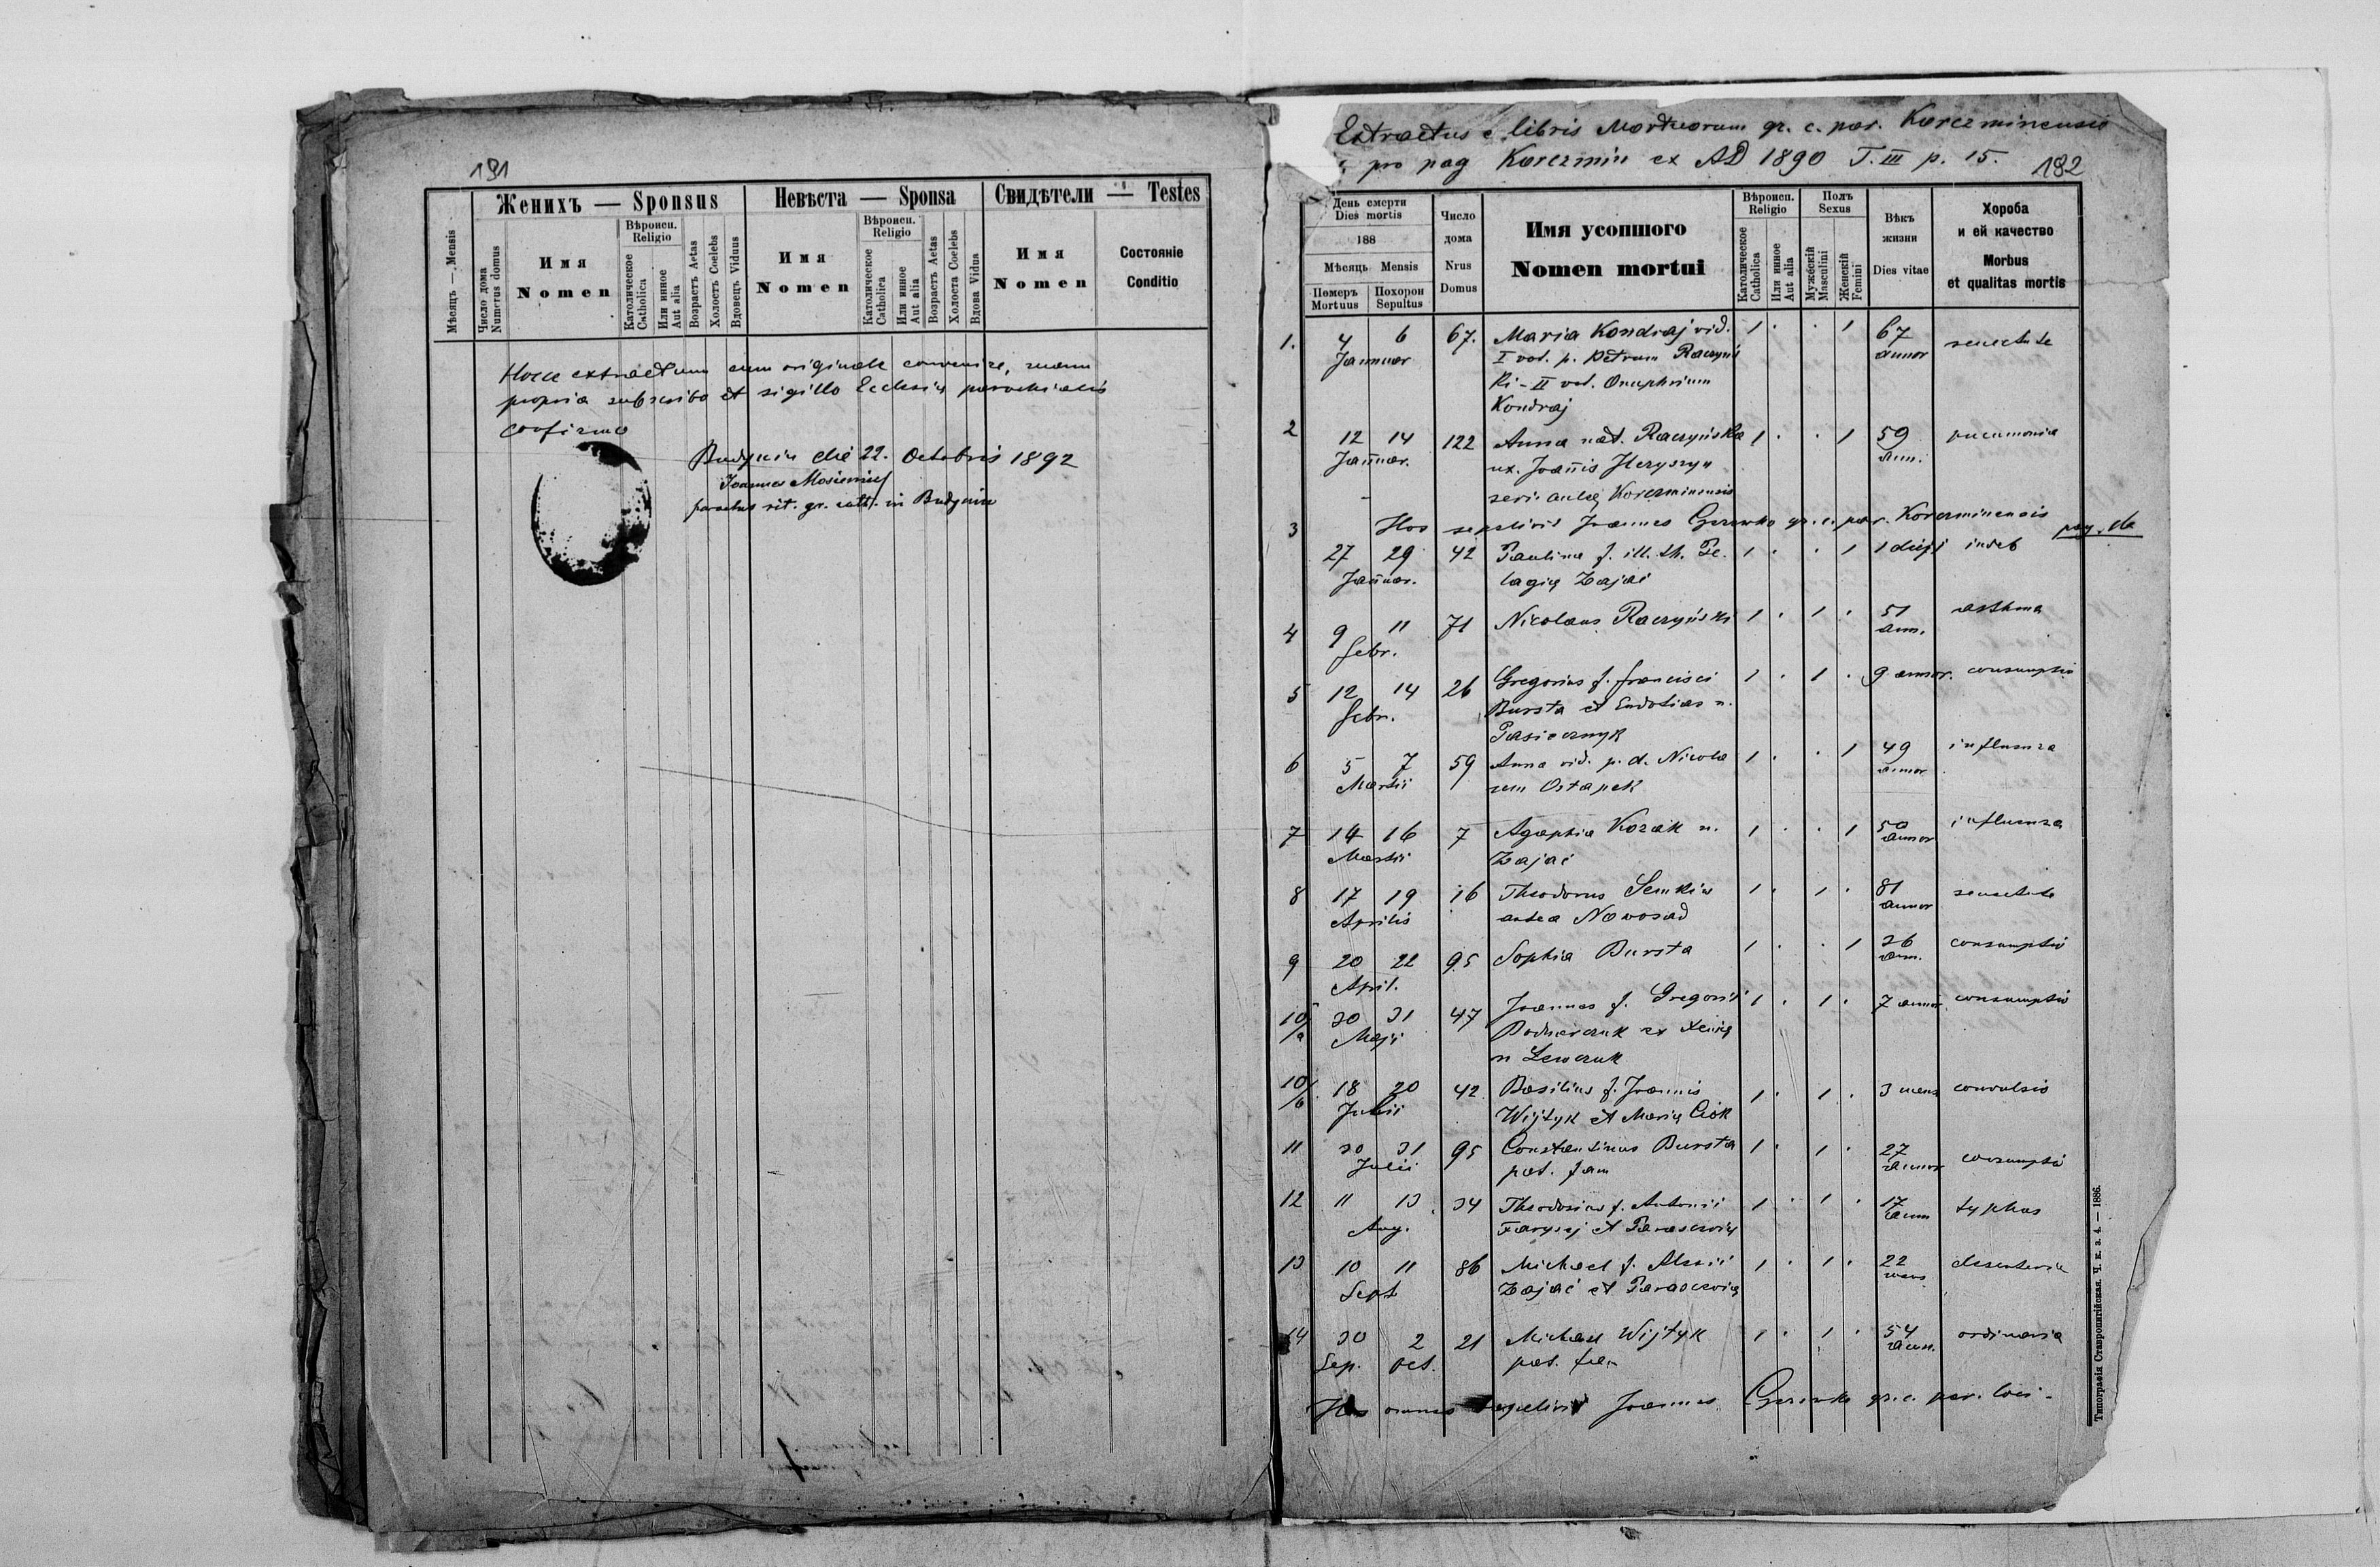 191
Женихъ — Sponsus
Невѣста — Sponsa
Свидѣтели — Testes
Мѣсяцъ — Mensis
Число дома
Numerus domus
Имя
Nomen
Вѣроисп.
Religio
Католическое
Catholica
Или инное
Aut alia
Возрастъ Aetas
Холостъ Coelebs
Вдовецъ Viduus
Имя
Nomen
Вѣроисп.
Religio
Католическое
Catholica
Или инное
Aut alia
Возрастъ Aetas
Холоста Coelebs
Вдова Vidua
Имя
Nomen
Состояніе
Conditio
Hocce extractum cum originale convenire, manu
propria subscribo et sigillo Ecclesię parochialis
confirmo
Budynin die 22. Octobris 1892
Joannes
parochus rit. gr. cath. in Budynin
Extractus e libris Mortuorum gr. c. par. Korczminensis
pro pag Korczmin ex AD 1890 T. III p. 15.
192
День смерти
Dies mortis
188
Мѣсяць Mensis
Померъ
Mortuus
Похорон
Sepultus
Число
дома
Nrus
Domus
Имя усопшого
Nomen mortui
Вѣроисп.
Religio
Католическое
Catholica
Или инное
Aut alia
Полъ
Sexus
Мужескій
Masculini
Женскій
Femini
Вѣкъ
жизни
Dies vitae
Хороба
и ей качество
Morbus
et qualitas mortis
1. 4 6 67. Maria Kondraj vid. 1 . . 1 67 senectute
Januar I vot. p. Petrum Raczyńs annor
ki - II vot. Onuphrium
Kondraj
2 12 14 122 Anna nat. Raczyńska 1 . . 1 59 pneumonia
Januar. ux. Joannis Jleryszyn ann.
Korczminensis
3 Hos sepelivit Joannes Gerewko gr. c. par. Korczminensis
27 29 42 Paulina f. ill. th. Pe- 1 . . 1 1 diei
Januar. lagię Zając
4 9 11 71 Nicolaus Raczyński 1 . 1 . 51 asthma
febr. ann.
5 12 14 26 Gregorius f. francisci 1 . 1 . 9 annor. consumptio
febr. Bursta et n.
Pasiecznyk
6 5 7 59 Anna vid. p. d. Nicola 1 . . 1 49 influenza
Martii um Ostapek annor
7 14 16 7 Agaphia Kozak n. 1 . . 1 50 influenza
Martii Zając annor
8 17 19 16 Theodorus Senkiw 1 . 1 . 81 senectute
Aprilis antea Nowosad annor
9 20 22 95 Sophia Bursta 1 . . 1 26 consumptio
April. ann.
10/a 30 31 47 Joannes f. Gregorii 1 . 1 . 7 annor consumptio
Maji Bodnarczuk et Xenię
n Lewczuk
10/b 18 20 42 Basilius f. Joannis 1 . 1 . 3 mens convulsio
Julii Wijtyk et Marię Ciok
11 30 31 95 Constantinus Bursta 1 . 1 . 27 consumptio
Julii pat. fam annor
12 11 13 34 Theodosius f. Antonii 1 . 1 . 17 typhus
Aug. et Parascevię ann
13 10 11 86 Michael f. Alexii 1 . 1 . 22 dissenteria
Sept Zając et Parascevię mens
14 30 2 21 Michael Wijtyk 1 . 1 . 54 ordinaria
Sep. Oct. pat. fam ann.
Hos omnes sepelivit Joannes Gerewko gr. c. par. loci -
Типографія Ставропигійская. Ч. к. з. 4. — 1886.